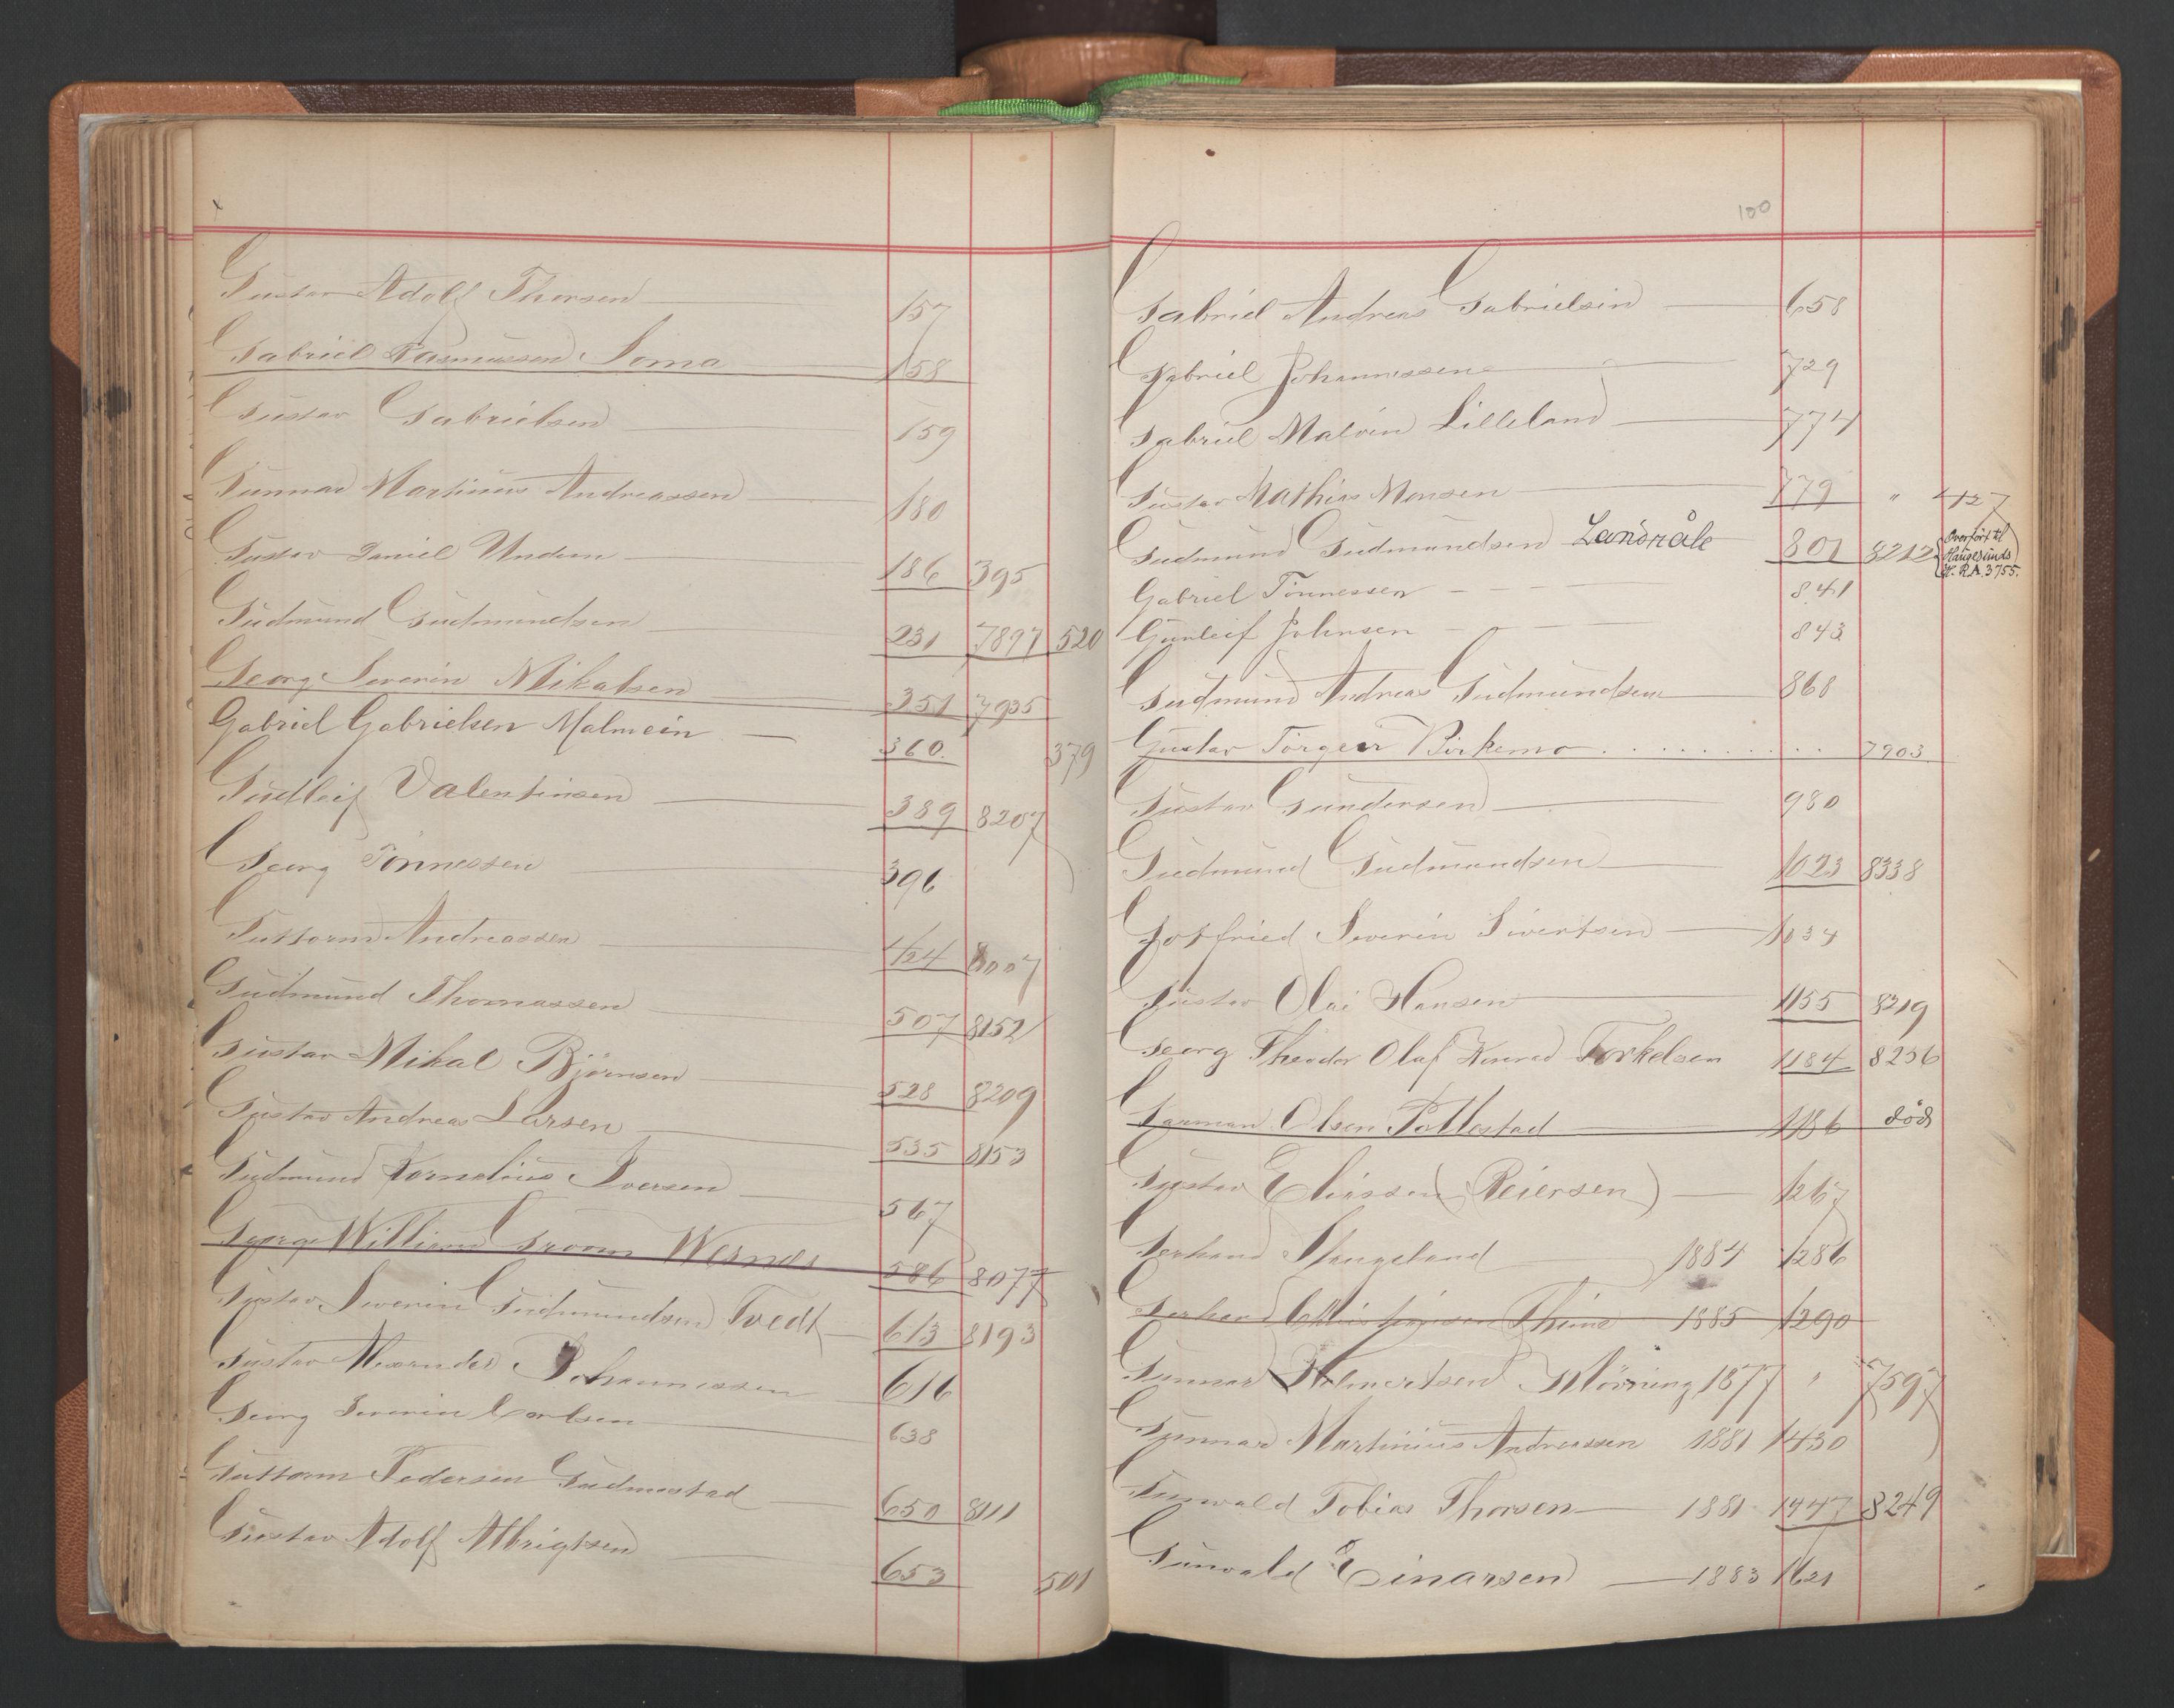 Gustav Adolf Thorsen 157
Gabriel Rasmussen Soma 158
Gustav Gabrielsen 159
Gunnar Martinius Andreassen 180
Gustav Daniel 186 395
Gudmund Gudmundsen 231 7897 520
Georg Severin Mikalsen 351 7935
Gabriel Gabrielsen Malmein 360. 379
Gudleif Valentinsen 389 8207
Georg Tönnessen 396
Guttorm Andreassen 424 8007
Gudmund Thomassen 507 8152
Gustav Mikal Björnsen 528 8209
Gustav Andreas Larsen 535 8153
Gudmund Kornelius Iversen 567
George William Groom Wesnes 586 8077
Gustav Severin Gudmundsen Tvedt 613 8193
Gustav Alexander Johannessen 616
Georg Severin Carlsen 638
Guttorm Pedersen Gudmestad 650 8111
Gustav Adolf Albrigtsen 653 501
100
Gabriel Andreas Gabrielsen 658
Gabriel Johannessen 729
Gabriel Malvin Lilleland 774
Gustav Mathias Monsen 779 " 427
Gudmund Gudmundsen Landraak 801 8212 Overført til
Haugesunds
H. R.A. 3755.
Gabriel Tönnessen 841
Gunleif Johnsen 843
Gudmund Andreas Gudmundsen 868
Gustav Törger Birkemo 7903
Gustav Gundersen 980
Gudmund Gudmundsen 1023 8338
Gotfried Severin Sivertsen 1034
Gustav Olai Hansen 1155 8219
Georg Theodor Olaf Konrad Torkelsen 1184 8256
Garman Olsen Pollestad 1186 död
Gustav Eliassen (Reiersen) 1267
Gerhard Haugeland 1884 1286
Gerhard Christiansen Thime 1885 1290
Gunnar Holmertsen Mövning 1877 " 7597
Gunnar Martinius Andreassen 1881 1430
Gunvald Tobias Thorsen 1881 1447 8249
Gunvald Einarsen 1883 1621